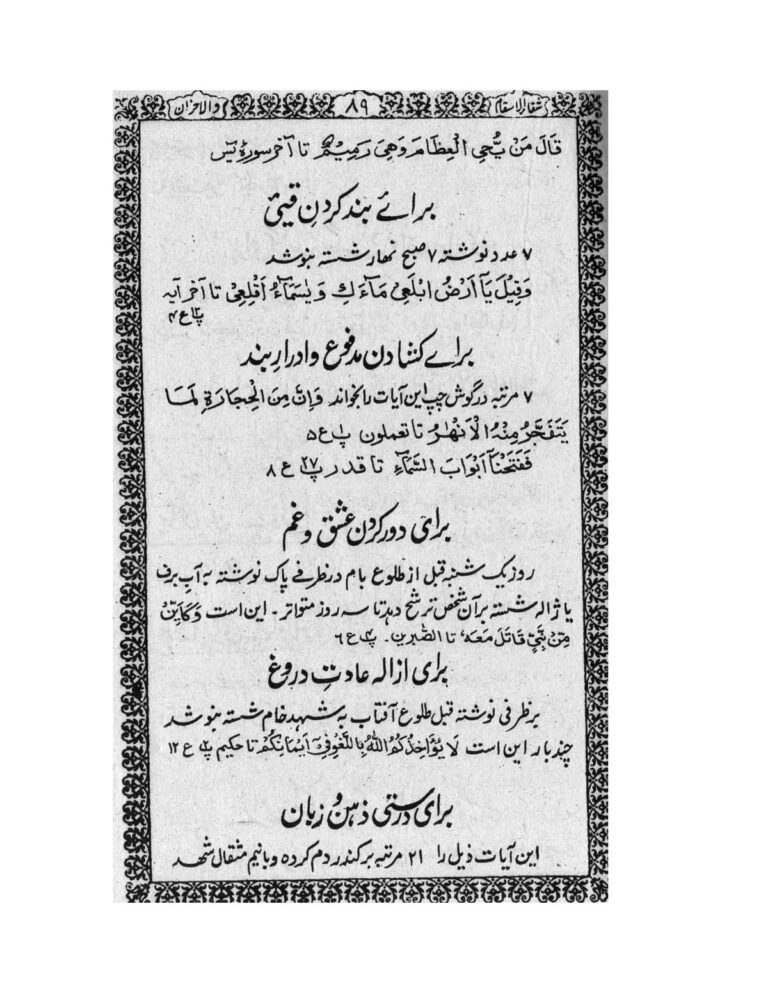 شفاء الاسقام ۸۹ والاحزان
قَالَ مَنْ يُّحْيِ الْعِظَامَ وَهِيَ رَمِيْمٌ تا آخر سورۂ يٰس
برائے بند کردنِ قیئ
۷ عدد نوشتہ ۷ صبح نہار شستہ بنوشد
وَقِيْلَ يَآ اَرْضُ ابْلَعِيْ مَآءَكِ وَيٰسَمَآءُ اَقْلِعِيْ تا آخر آیہ
پ۱۲ ع ۴
برائے کشادن مدفوع و ادرارِ بند
۷ مرتبہ در گوش چپ این آیات را بخواند وَاِنَّ مِنَ الْحِجَارَةِ لَمَا
يَتَفَجَّرُ مِنْهُ الْاَنْهٰرُ تا تعملون پ۱ ع ۵
فَفَتَحْنَآ اَبْوَابَ السَّمَآءِ تا قدر پ۲۷ ع ۸
برای دور کردن عشق و غم
روز یک شنبہ قبل از طلوع بام در ظرفے پاک نوشتہ بہ آبِ برف
یا ژالہ شستہ بر آن شخص ترشح دہد تا سہ روز متواتر۔ این است وَكَاَيِّنْ
مِّنْ نَّبِيٍّ قَاتَلَ مَعَهٗ تا الصّٰبرین۔ پ۴ ع ۶
برای ازالہ عادتِ دروغ
بر ظرفی نوشتہ قبل طلوع آفتاب بہ شہد خام شستہ بنوشد
چند بار این است لَا يُؤَاخِذُكُمُ اللّٰهُ بِاللَّغْوِ فِيْٓ اَيْمَانِكُمْ تا حکیم ع ۱۲
برای درستی ذہن و زبان
این آیات ذیل را ۲۱ مرتبہ بر کندر دم کردہ و بانیم مثقال شہد